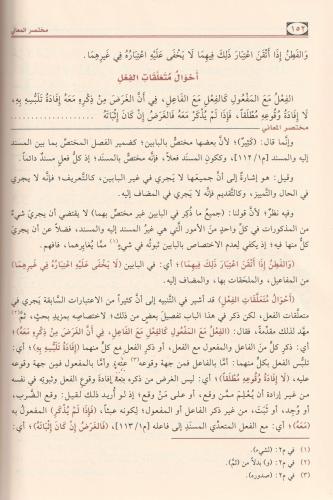 ١٥٢
مختصر المعاني
وَالْفَطِنُ إِذَا أَتْقَنَ اعْتِبَارَ ذَلِكَ فِيهِمَا لَا يَخْفَى عَلَيْهِ اعْتِبَارُهُ فِي غَيْرِهِمَا.
أَحْوَالُ مُتَعَلِّقَاتِ الفِعْلِ
الفِعْلُ مَعَ المَفْعُولِ كَالفِعْلِ مَعَ الفَاعِلِ، فِي أَنَّ الغَرَضَ مِنْ ذِكْرِهِ مَعَهُ إِفَادَةُ تَلَبُّسِهِ بِهِ،
لَا إِفَادَةُ وُقُوعِهِ مُطْلَقاً، فَإِذَا لَمْ يُذْكَرْ مَعَهُ فَالغَرَضُ إِنْ كَانَ إِثْبَاتَهُ
مختصر المعاني
وإنَّما قال: (كثيرٌ)؛ لأنَّ بعضها مختصٌّ بالبابين؛ كضمير الفصل المختصِّ بما بين المسند
إليه والمسند [م١/١١٢]، وككونِ المسند فعلاً، فإنَّه مختصٌّ بالمسند؛ إذ كلُّ فعلٍ مسندٌ دائماً.
وقيل: هو إشارةٌ إلى أنَّ جميعَها لا يَجري في غيرِ البابين، كالتَّعريف؛ فإنَّه لا يجري
في الحال والتَّمييز، وكالتَّقديم فإنَّه لا يجري في المضاف إليه.
وفيه نظرٌ؛ لأنَّ قولنا: (جميعُ ما ذُكر في البابين غير مختصٍّ بهما) لا يقتضي أن يجريَ شيءٌ
من المذكورات في كلِّ واحدٍ من الأمور الَّتي هي غيرُ المسند إليه والمسند، فضلاً عن أن يجريَ
كلٌّ منها فيه؛ إذ يكفي لعدم الاختصاص بالبابين ثبوتُه في شيءٍ(١) ممَّا يُغايرهما، فافهم.
(وَالفَطِنُ إِذَا أَتْقَنَ اعْتِبَارَ ذَلِكَ فِيهِمَا)؛ أي: في البابين (لَا يَخْفَى عَلَيْهِ اعْتِبَارُهُ فِي غَيْرِهِمَا)
من المفاعيل، والملحقات بها، والمضاف إليه.
(أَحْوَالُ مُتَعَلِّقَاتِ الفِعْلِ) قد أُشير في التَّنبيه إلى أنَّ كثيراً من الاعتبارات السَّابقة يَجري في
متعلّقات الفعل، لكن ذكر في هذا الباب تفصيلَ بعضٍ من ذلك؛ لاختصاصِه بمزيدِ بحثٍ، ثمَّ(٢)
مهَّد لذلك مقدّمةً، فقال: (الفِعْلُ مَعَ المَفْعُولِ كَالفِعْلِ مَعَ الفَاعِلِ، فِي أَنَّ الغَرَضَ مِنْ ذِكْرِهِ مَعَهُ)
أي: ذكر كلٍّ من الفاعل والمفعول مع الفعل، أو ذكر الفعل مع كلٍّ منهما (إِفَادَةُ تَلَبُّسِهِ بِهِ)؛ أي:
تلبُّس الفعل بكلٍّ منهما: أمَّا بالفاعل فمن جهة وقوعه عنه(٣)، وأمَّا بالمفعول فمن جهة وقوعه
عليه، (لَا إِفَادَةُ وُقُوعِهِ مُطْلَقاً)؛ أي: ليس الغرض من ذكره معه إفادةَ وقوعِ الفعل وثبوته في نفسه
من غير إرادةِ أن يُعلم مِمَّن وقع، أو على مَن وَقع؛ إذ لو أُريد ذلك لقيل: وقع الضَّرب،
أو وُجِد، أو ثَبَت، من غير ذكر الفاعل أو المفعول؛ لكونه عبثاً، (فَإِذَا لَمْ يُذْكَرِ) المفعول به
(مَعَهُ)؛ أي: مع الفعل المتعدِّي المسنَد إلى فاعله [م١/١١٣]، (فَالغَرَضُ إِنْ كَانَ إِثْبَاتَهُ)؛ أي:
(١) في م٢: (لشيء).
(٢) في م٢: (و) بدلاً من (ثمَّ).
(٣) في م٢: (صدوره).